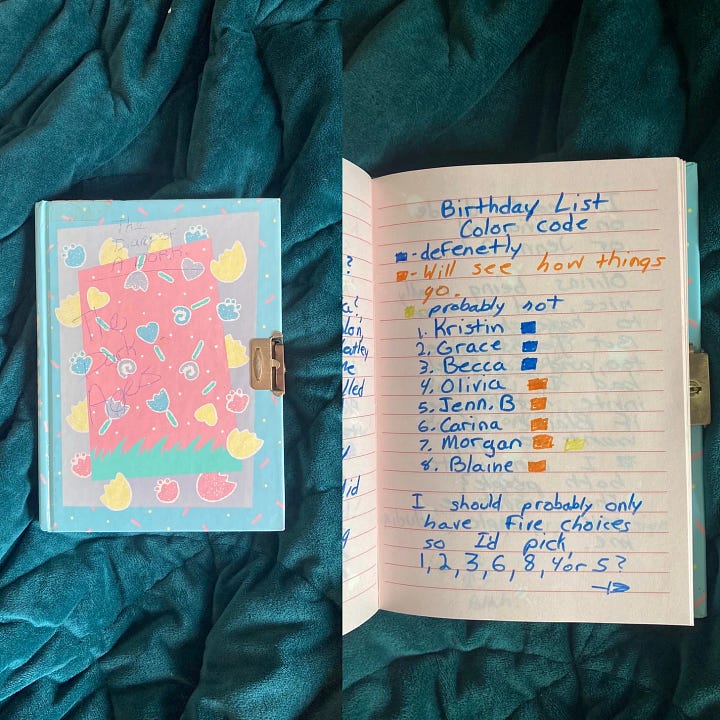 The
Diary of
A Dork.
The
Dark
Ages
?
a?
lon,
eatley
me
lled
id
g
Birthday List
Color code
- defenetly
- Will see how things
go.
probably not
1. Kristin
2. Grace
3. Becca
4. Olivia
5. Jenn. B
6. Carina
7. Morgan
8. Blaine
I should probably only
have five choices
so I'd pick,
1, 2, 3, 6, 8, 4 or 5?